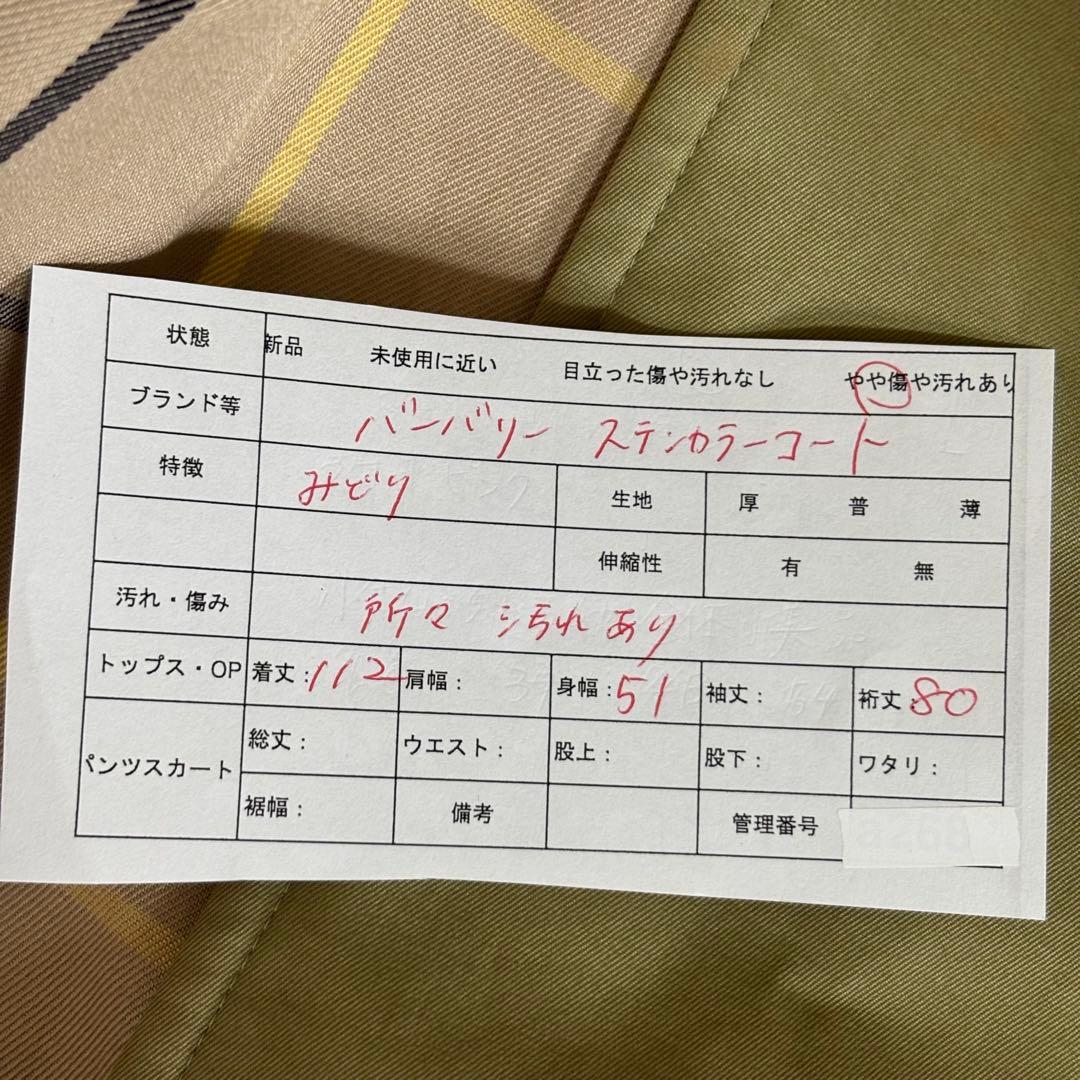 状態 新品 未使用に近い 目立った傷や汚れなし やや傷や汚れあり
ブランド等 バーバリー ステンカラーコート
特徴 みどり 生地 厚 普 薄
伸縮性 有 無
汚れ・傷み 所々 汚れあり
トップス・OP 着丈:112 肩幅: 身幅:51 袖丈: 裄丈:80
パンツスカート 総丈: ウエスト: 股上: 股下: ワタリ:
裾幅: 備考 管理番号